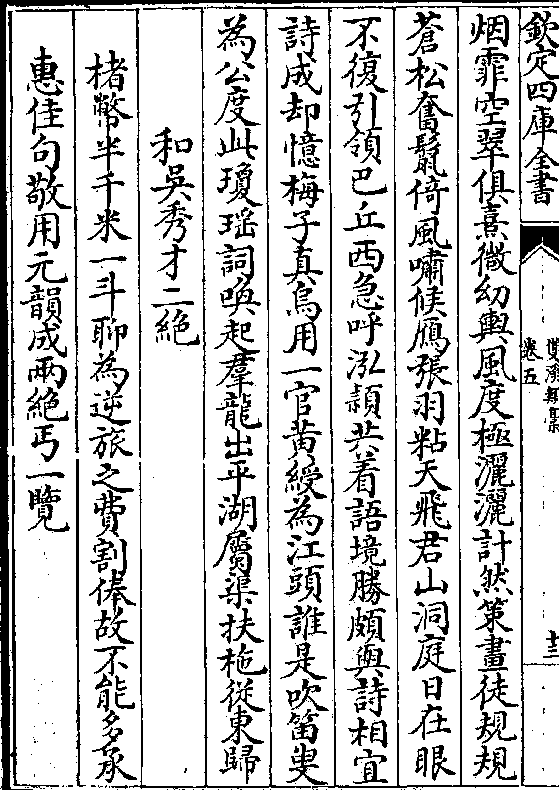 欽定四庫全書
卷五
十三
烟霏空翠俱熹微幼輿風度極灑灑計然策畫徒規規
蒼松奮鬛倚風嘯候鴈張羽粘天飛君山洞庭日在眼
不復引領巴丘西急呼泓頴共着語境勝頗與詩相宜
詩成却憶梅子真烏用一官黄綬為江頭誰是吹笛叟
為公度此瓊瑶詞喚起羣龍出平湖屬渠扶柂從東歸
和吳秀才二絶
楮幣半千米一斗聊為逆旅之費割俸故不能多承
惠佳句敬用元韻成兩絶丐一覽